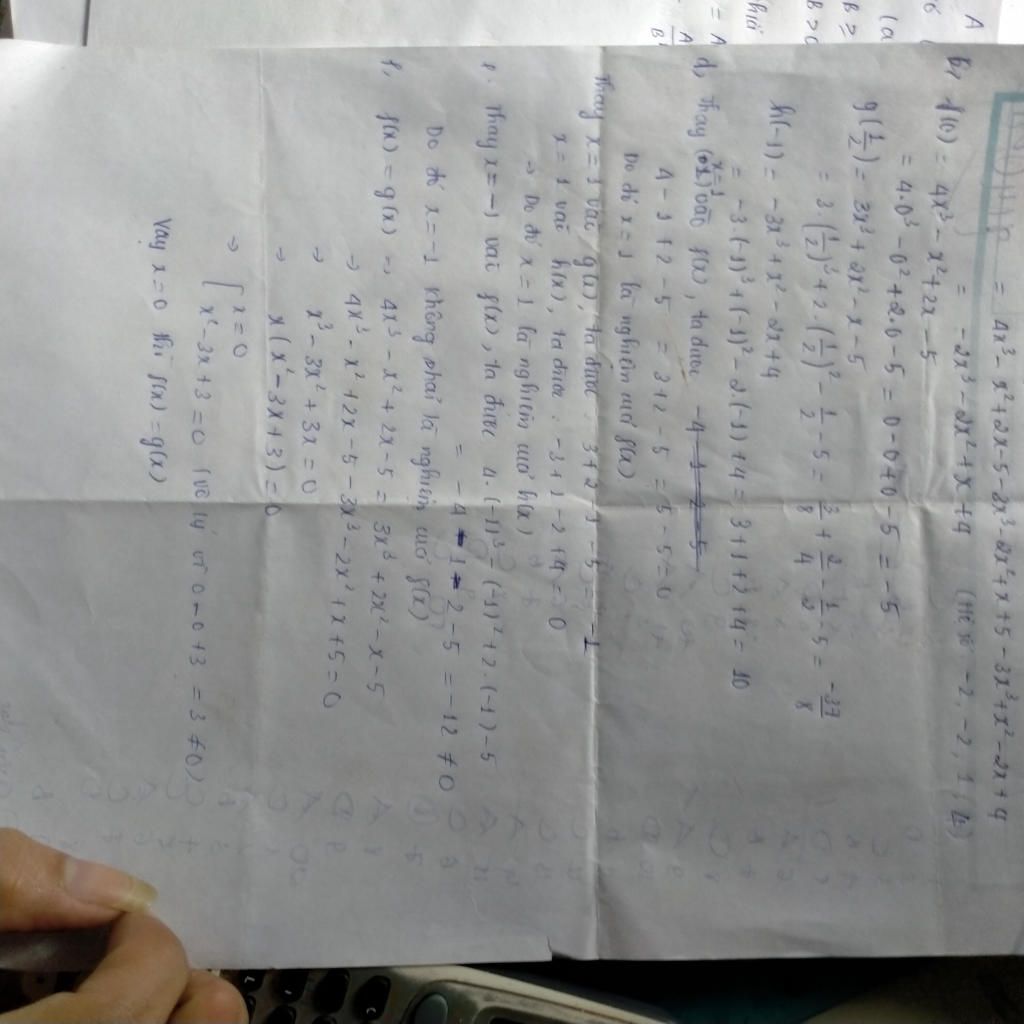 = 4x³ - x² + 2x - 5 - 3x³ - 2x² + x + 5 - 3x³ + x² - 2x + 4
= -2x³ - 2x² + x + 4 (Hệ số -2, -2, 1, 4)
b, f(0) = 4x³ - x² + 2x - 5
= 4.0³ - 0² + 2.0 - 5 = 0 - 0 + 0 - 5 = -5
g(1/2) = 3x³ + 2x² - x - 5
= 3.(1/2)³ + 2.(1/2)² - 1/2 - 5 = 3/8 + 2/4 - 1/2 - 5 = -37/8
h(-1) = -3x³ + x² - 2x + 4
= -3.(-1)³ + (-1)² - 2.(-1) + 4 = 3 + 1 + 2 + 4 = 10
d, Thay x=1 vào f(x), ta được
4 - 1 + 2 - 5 = 3 + 2 - 5 = 5 - 5 = 0
Do đó x = 1 là nghiệm của f(x)
Thay x = 1 vào g(x), ta được: 3 + 2 - 1 - 5 = -1
x = 1 vào h(x), ta được: -3 + 1 - 2 + 4 = 0
⇒ Do đó x = 1 là nghiệm của h(x)
e. Thay x = -1 vào f(x), ta được 4.(-1)³ - (-1)² + 2.(-1) - 5
= -4 - 1 - 2 - 5 = -12 ≠ 0
Do đó x = -1 không phải là nghiệm của f(x)
f, f(x) = g(x) ⇒ 4x³ - x² + 2x - 5 = 3x³ + 2x² - x - 5
⇒ 4x³ - x² + 2x - 5 - 3x³ - 2x² + x + 5 = 0
⇒ x³ - 3x² + 3x = 0
⇒ x(x² - 3x + 3) = 0
⇒ { x = 0
x² - 3x + 3 = 0 (vô lý vì 0 - 0 + 3 = 3 ≠ 0)
Vậy x = 0 thì f(x) = g(x)